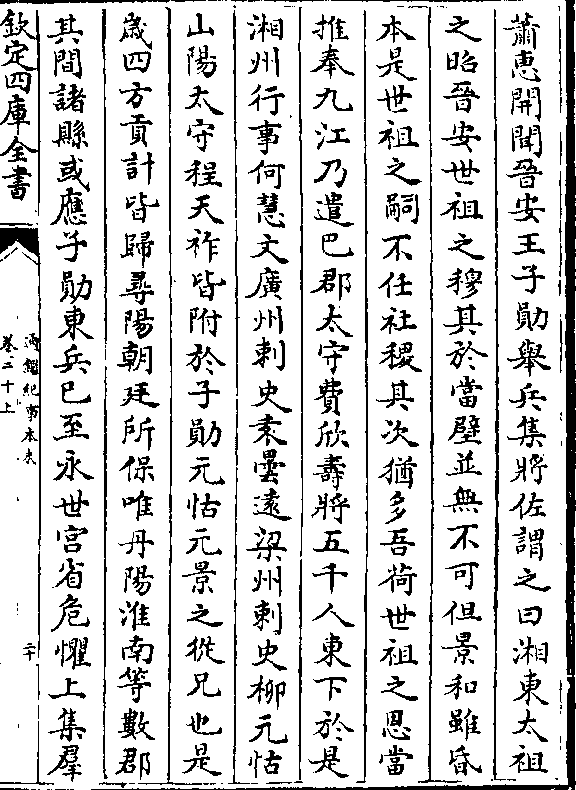 蕭惠開聞晉安王子勛舉兵集將佐謂之曰湘東太祖
之昭晉安世祖之穆其於當璧並無不可但景和雖昏
本是世祖之嗣不任社稷其次猶多吾荷世祖之恩當
推奉九江乃遣巴郡太守費欣壽將五千人東下於是
湘州行事何慧文廣州刺史袁曇逺梁州刺史柳元怙
山陽太守程天祚皆附於子勛元怙元景之從兄也是
歳四方貢計皆歸尋陽朝廷所保唯丹陽淮南等數郡
其間諸縣或應子勛東兵已至永世宫省危懼上集羣
欽定四庫全書
通鑑紀事本末
卷二十上
二十